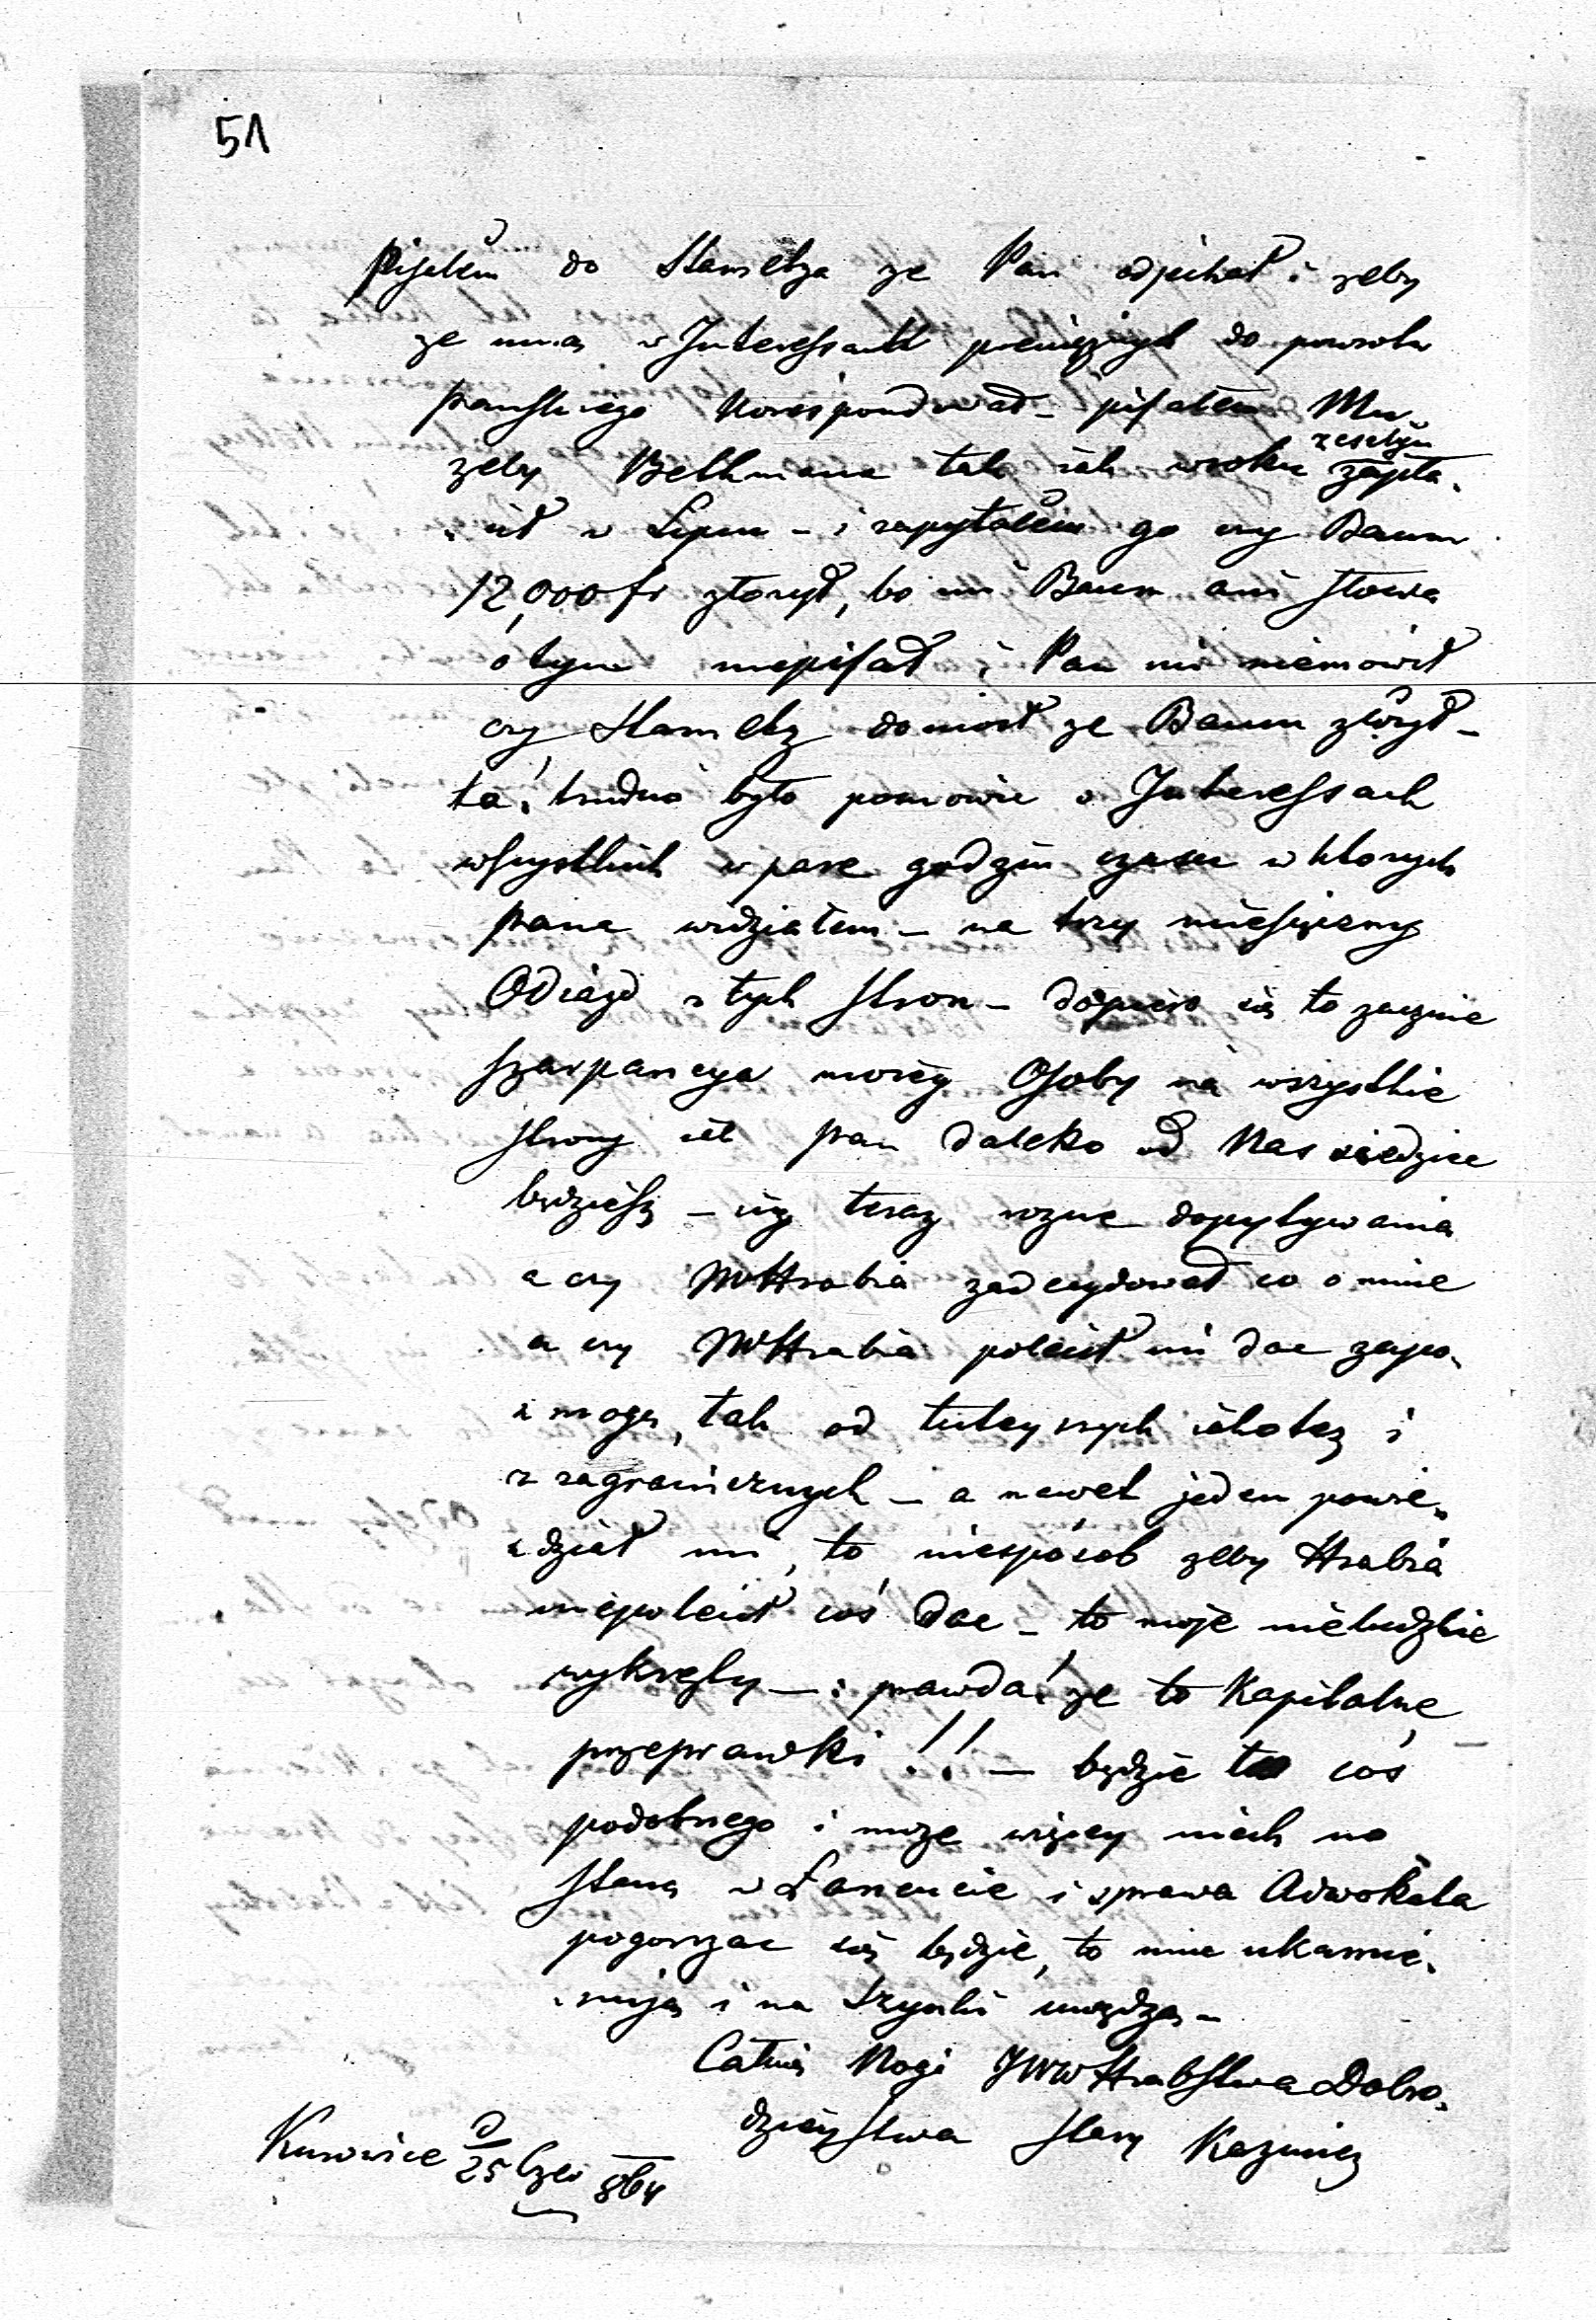 51
Pisałem do Stametza ze Pan odjechał i zeby
ze mną w Interessach pieniężnych do powrotu
Pańskiego Korespondował – pisałem Mu
zeszłym
zeby Bethmana tak jak w roku zapła-
-cił w Lipcu – i zapytałem go czy Baum
12,000 fr złożył, bo mi Baum ani słowa
o tym niepisał i Pan mi niemówił
czy Stametz doniosł ze Baum złożył –
ta, trudno było pomowic o Interessach
wszystkich w pare godzin czasu w ktorych
Pana widziałem – na trzy miesięczny
Odiazd z tych stron – dopiero się to zacznie
szarpancya moiey Osoby na wszystkie
strony iak Pan daleko od Nas siedziec
będziesz – już teraz rozne dopytywania
a czy JWHrabia zadecydował co o mnie
a czy JWHrabia polecił mi dac zapo-
-mogę, tak od tuteyszych iakotez i
z zagranicznych – a nawet jeden powie-
-dział mi, to niesposob zeby Hrabia
niepolecił coś dac – to moje nieludzkie
wykręty – i prawda! ze to Kapitalne
przeprawki !! – będzie tu coś
podobnego i moze więcey niech no
staną w Łancucie i sprawa Adwokata
pogorszac się będzie, to mnie ukamie-
-nują i na
Całuię Nogi JWW Hrabstwa Dobro-
dzieystwa stary Kazimiez
Kurowice d 25 Czer 864